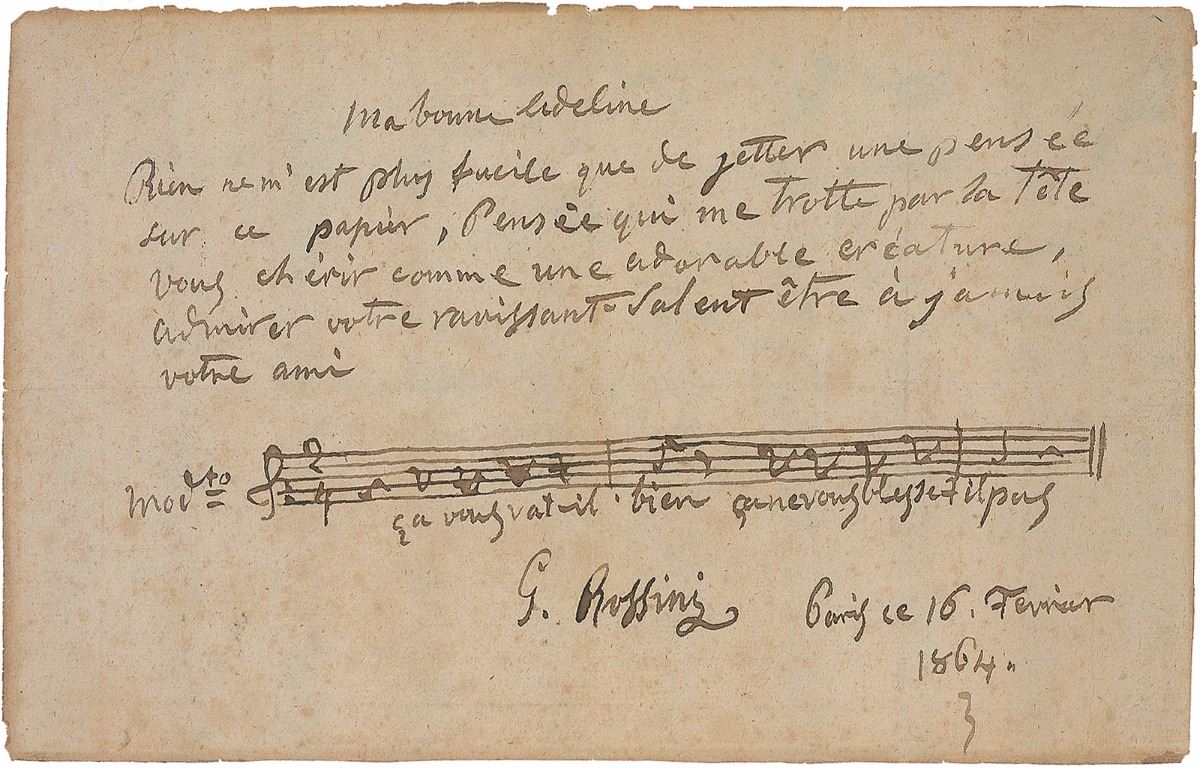 Ma bonne Adeline
Rien ne m'est plus facile que de jetter une pensée
sur ce papier, Pensée qui me trotte par la Tête
vous chérir comme une adorable créature,
admirer votre ravissant Talent être à jamais
votre ami
Modto
2
4
ça vous vat-il bien ça ne vous blesse t il pas
G. Rossini Paris ce 16. Fevrier
1864.